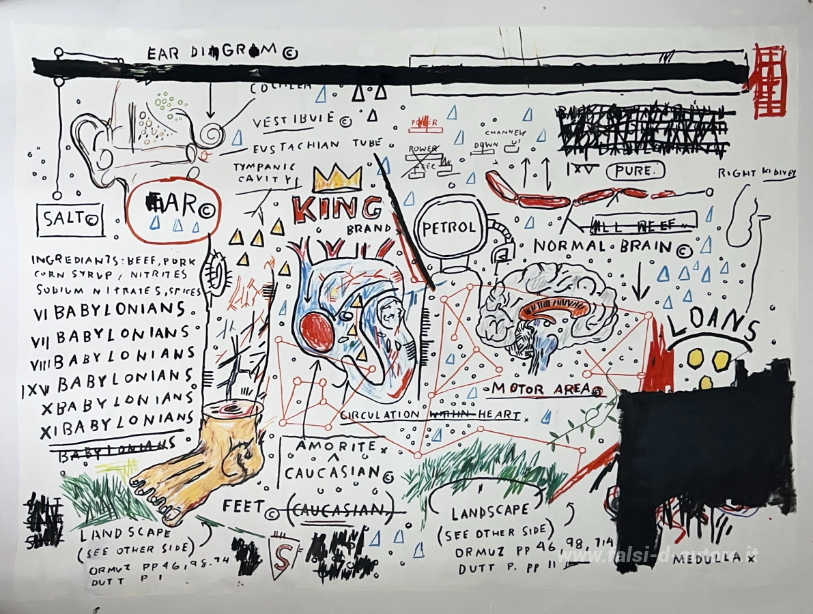 EAR DIAGRAM ©
COCHLEA
VESTIBUlE ©
EUSTACHIAN TUBE
TYMPANIC
CAVITY
POWER
POWER
CHANNEL
DOWN
IXV PURE.
RIGHT KIDNEY
EAR ©
SALT ©
KING
BRAND
PETROL
ALL BEEF
NORMAL BRAIN ©
INGREDIANTS: BEEF, PORK
CORN SYRUP, NITRITES
SODIUM NITRATES, SPICES
VI BABYLONIANS.
VII BABYLONIANS
VIII BABYLONIANS.
IXV BABYLONIANS.
X BABYLONIANS.
XI BABYLONIANS
BABYLONIANS
LOANS
MOTOR AREA ©
CIRCULATION WITHIN HEART
AMORITE x
CAUCASIAN ©
FEET © (CAUCASIAN)
LANDSCAPE
(SEE OTHER SIDE)
ORMUZ PP 46, 98, 74
DUTT P 1
S
LANDSCAPE
(SEE OTHER SIDE)
ORMUZ PP 46, 98, 714
DUTT P. PP 11
MEDULLA x
www.falsi-d-autore.it